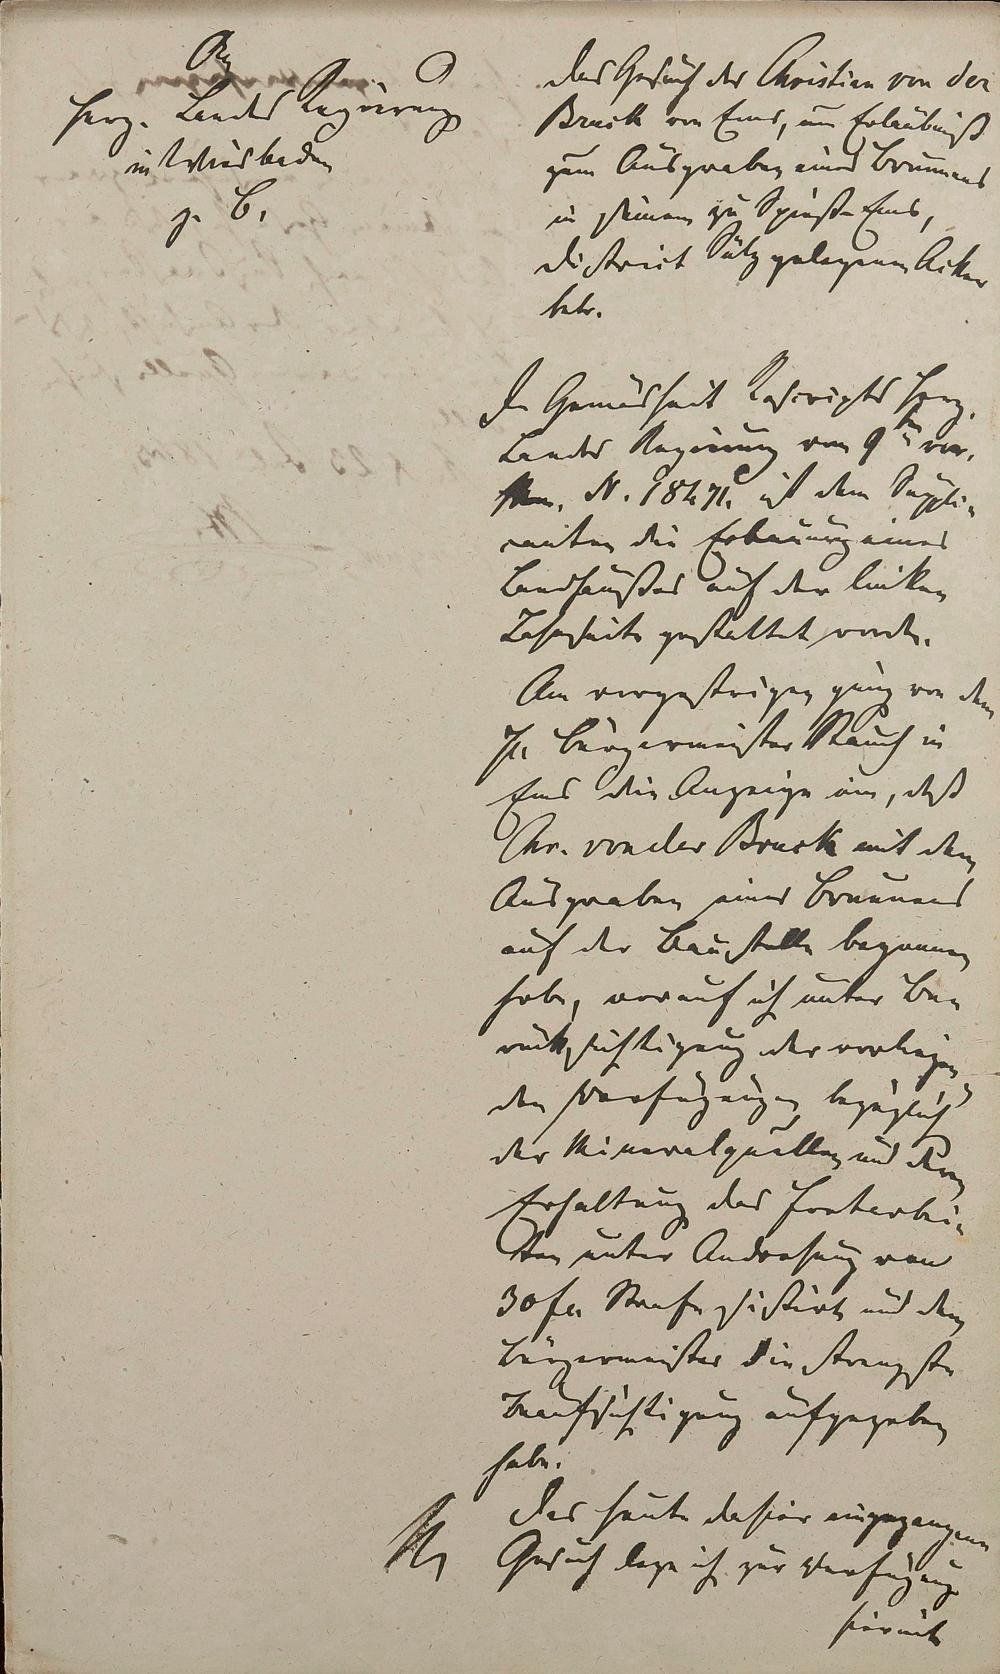 An
Herz. Landes Regierung
in Wiesbaden
z. B.
Das Gesuch des Christian von der
Bruck von Ems, um Erlaubniß
zum Ausgraben eines Brunnens
in seinem zu Spieß-Ems,
District Sülz gelegenen Acker
betr.
In Gemäsheit Rescripts Herz.
Landes Regierung vom 9ten vor.
Mon. N. 18471. ist dem Suppli-
canten die Erbauung eines
Landhauses auf der linken
Lahnseite gestattet worden.
Am vorgestrigen ging von dem
Hr Bürgermeister Rauch in
Ems die Anzeige ein, daß
Chr. von der Bruck mit dem
Ausgraben eines Brunnens
auf der Baustelle begonnen
habe, worauf ich unter Be-
rücksichtigung der vorliegen-
den Verfügungen bezüglich
der Mineralquellen und deren
Erhaltung das Fortarbei-
ten unter Androhung von
30 fl. Strafe sistirt und dem
Bürgermeister die strengste
Beaufsichtigung aufgegeben
habe.
Das heute dahier eingegangene
Gesuch lege ich zur Verfügung
hiermit